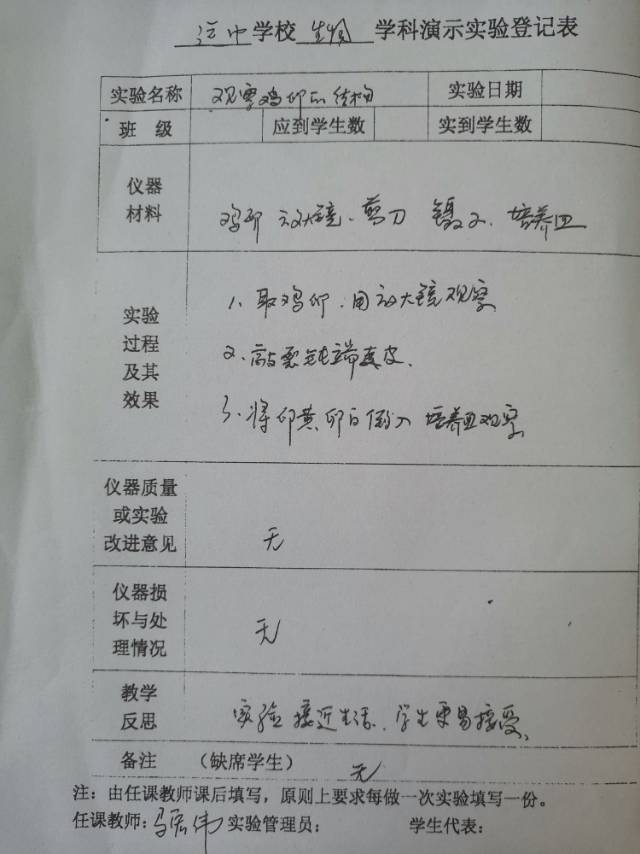 中学校 生物 学科演示实验登记表
实验名称 观察鸡卵的结构 实验日期
班 级 应到学生数 实到学生数
仪器
材料
鸡卵 放大镜、剪刀 镊子、培养皿
实验
过程
及其
效果
1、取鸡卵、用放大镜观察
2、敲裂钝端
3、将卵黄卵白倒入 培养皿观察
仪器质量
或实验
改进意见
无
仪器损
坏与处
理情况
无
教学
反思
实验接近生活、学生更易接受、
备注 (缺席学生) 无
注：由任课教师课后填写，原则上要求每做一次实验填写一份。
任课教师：马宏伟 实验管理员： 学生代表：